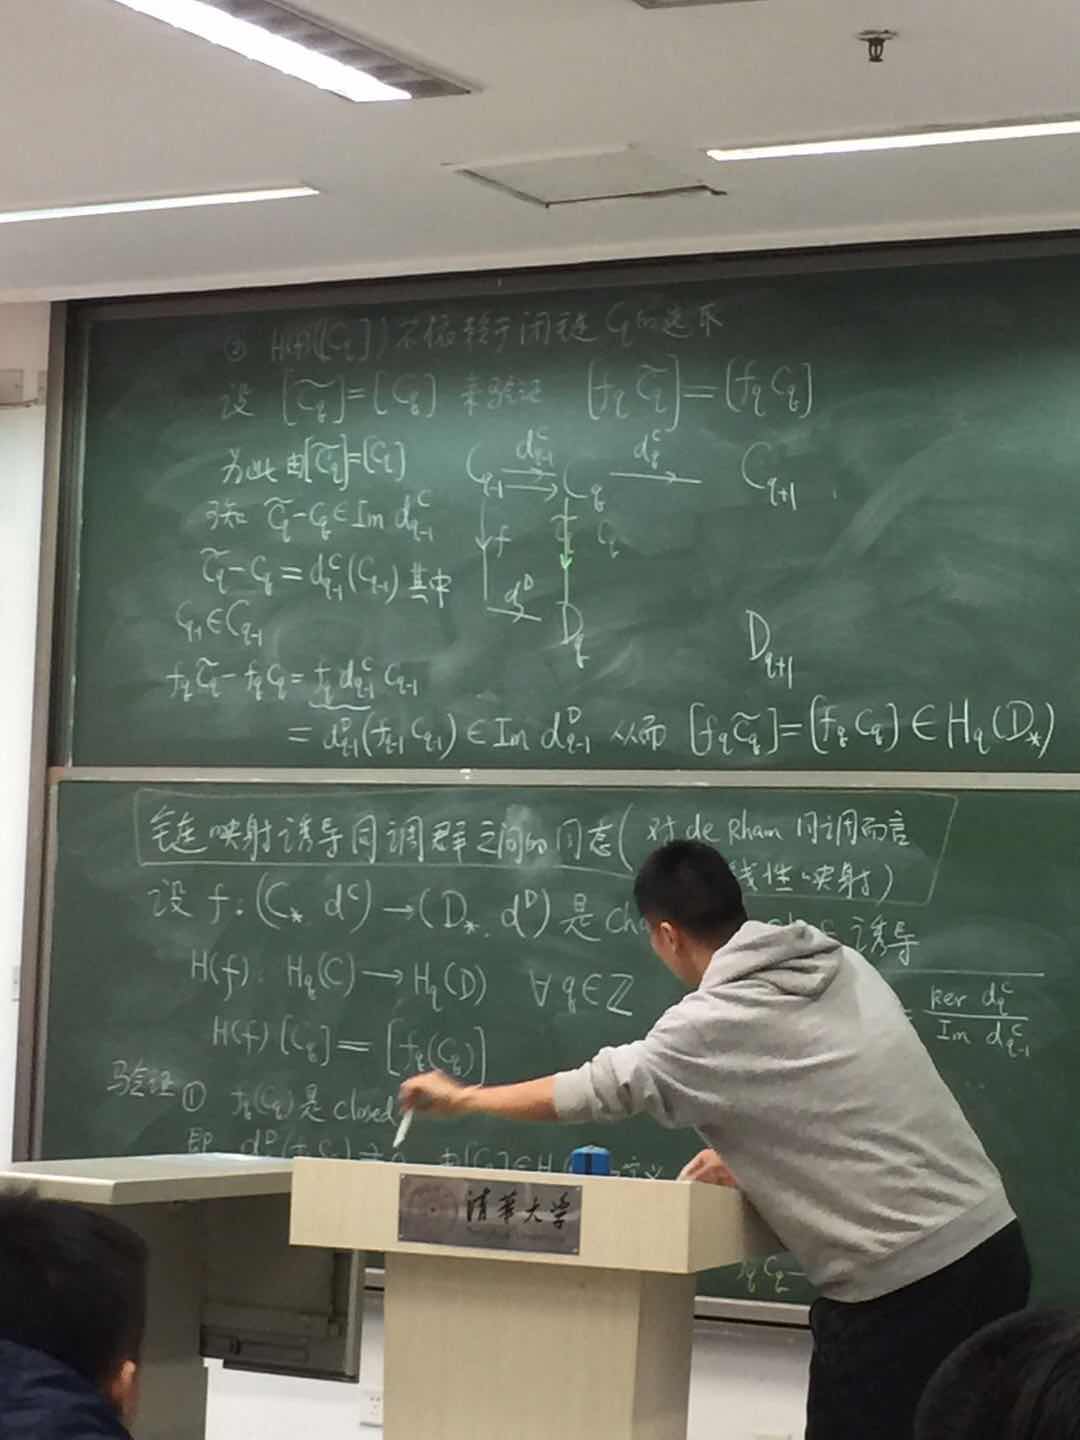 ② H(f)([C_q]) 不依赖于闭链 C_q 的选取
设 [C̃_q]=[C_q] 来验证 [f_q C̃_q]=[f_q C_q]
为此由[C̃_q]=[C_q]
可知 C̃_q-C_q∈Im d^C_{q-1}
C̃_q-C_q=d^C_{q-1}(C_{q-1}) 其中
C_{q-1}∈C_{q-1}
f_q C̃_q-f_q C_q=f_q d^C_{q-1} C_{q-1}
=d^D_{q-1}(f_{q-1} C_{q-1})∈Im d^D_{q-1} 从而 [f_q C̃_q]=[f_q C_q]∈H_q(D_*)
C_{q-1} d^C_{q-1} C_q d^C_q C_{q+1}
f C̃_q C_q
d^D D_q D_{q+1}
链映射诱导同调群之间的同态(对 de Rham 同调而言
线性映射)
设 f:(C_*, d^C)→(D_*, d^D) 是 诱导
H(f): H_q(C)→H_q(D) ∀q∈ℤ
= ker d^C_q / Im d^C_{q-1}
H(f)[C_q]=[f_q(C_q)]
验证① f_q(C_q)是closed
即
f_q C_q-
清华大学